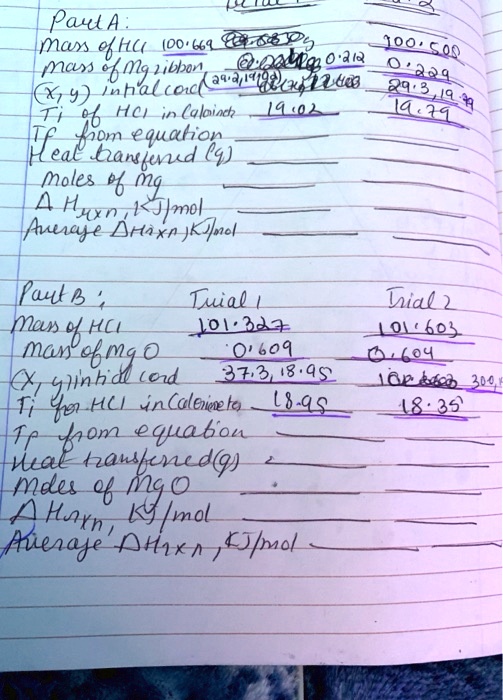 Part A:
Mass of HCl 100.669 100.500
Mass of Mg ribbon 0.212 0.229
(X, y) intial cord (29.2, 29.3, 19.79
Ti of HCl in Caloimetr 19.02 19.79
Tf from equation
Heat transferred (q)
Moles of Mg
Δ Hrxn, KJ/mol
Average ΔHrxn, KJ/mol
Part B: Trial 1 Trial 2
Mass of HCl 101.327 101.603
Mass of MgO 0.609 0.604
(X, y) intial cord 37.3, 18.95 300,
Ti for HCl in Calorimeter 18.95 18.35
Tf from equation
Heat transferred (q)
Moles of MgO
Δ Hrxn, KJ/mol
Average ΔHrxn, KJ/mol